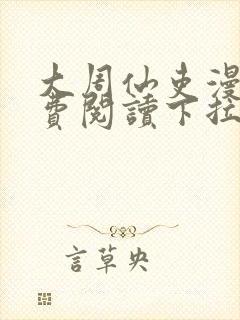 大周仙吏漫
費閱讀下拉
言草央